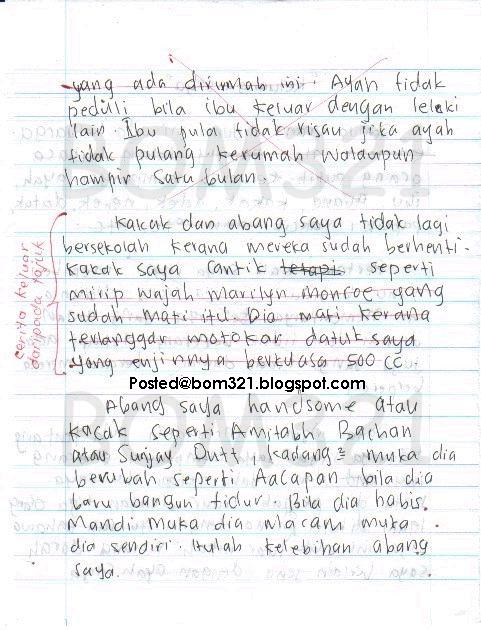 yang ada dirumah ini. Ayah tidak
peduli bila ibu keluar dengan lelaki
lain Ibu pula tidak risau jika ayah
tidak pulang kerumah walaupun
hampir satu bulan.
Kakak dan abang saya tidak lagi
bersekolah kerana mereka sudah berhenti.
kakak saya cantik tetapi seperti
mirip wajah marilyn monroe yang
sudah mati itu. Dia mati kerana
terlanggar motokar datuk saya
yang enjinnya berkuasa 500 CC.
cerita keluar
daripada tajuk
Posted@bom321.blogspot.com
Abang saya handsome atau
kacak seperti Amitabh Bachan
atau Sunjay Dutt kadang² muka dia
berubah seperti Aacapan bila dia
baru bangun tidur. Bila dia habis
Mandi muka dia macam muka
dia sendiri. Itulah kelebihan abang
saya.
BOM321
BOM321